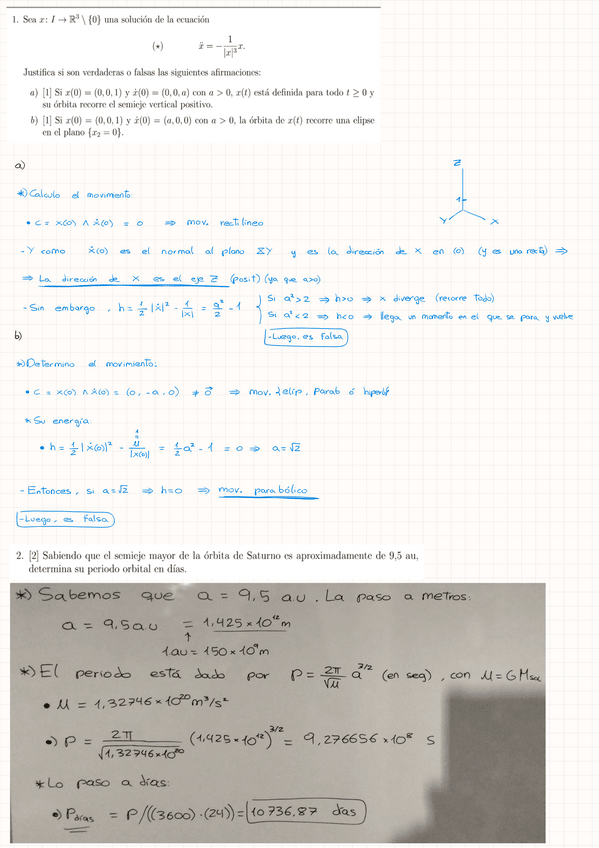 1. Sea x: I → ℝ³ \ {0} una solución de la ecuación
(⋆) ẍ = − 1/|x|³ x.
Justifica si son verdaderas o falsas las siguientes afirmaciones:
a) [1] Si x(0) = (0, 0, 1) y ẋ(0) = (0, 0, a) con a > 0, x(t) está definida para todo t ≥ 0 y
su órbita recorre el semieje vertical positivo.
b) [1] Si x(0) = (0, 0, 1) y ẋ(0) = (a, 0, 0) con a > 0, la órbita de x(t) recorre una elipse
en el plano {x₂ = 0}.
a)
Z
1
Y
X
*) Calculo el movimiento:
• c = x(0) ∧ ẋ(0) = 0 ⇒ mov. rectilíneo
- Y como ẋ(0) es el normal al plano XY y es la dirección de x en (0) (y es una recta) ⇒
⇒ La dirección de x es el eje Z (posit) (ya que a>0)
- Sin embargo, h = 1/2 |ẋ|² - 1/|x| = a²/2 - 1 { Si a² > 2 ⇒ h>0 ⇒ x diverge (recorre todo)
Si a² < 2 ⇒ h<0 ⇒ llega un momento en el que se para y vuelve
- Luego, es Falsa
b)
*) Determino el movimiento:
• c = x(0) ∧ ẋ(0) = (0, -a, 0) ≠ 0⃗ ⇒ mov. elip, Parab ó hiperb
* Su energía:
• h = 1/2 |ẋ(0)|² - μ/|x(0)| = 1/2 a² - 1 = 0 ⇒ a = √2
- Entonces, si a = √2 ⇒ h=0 ⇒ mov. parabólico
- Luego, es Falsa
2. [2] Sabiendo que el semieje mayor de la órbita de Saturno es aproximadamente de 9,5 au,
determina su periodo orbital en días.
*) Sabemos que a = 9,5 au. La paso a metros:
a = 9,5 au = 1,425 × 10¹² m
↑
1 au = 150 × 10⁹ m
*) El periodo está dado por P = 2π/√μ a^3/2 (en seg), con μ = G M sol
• μ = 1,32746 × 10²⁰ m³/s²
•) P = 2π/√1,32746 × 10²⁰ (1,425 × 10¹²)^3/2 = 9,276656 × 10⁸ s
* Lo paso a días:
•) P días = P/((3600)·(24)) = 10736,87 días